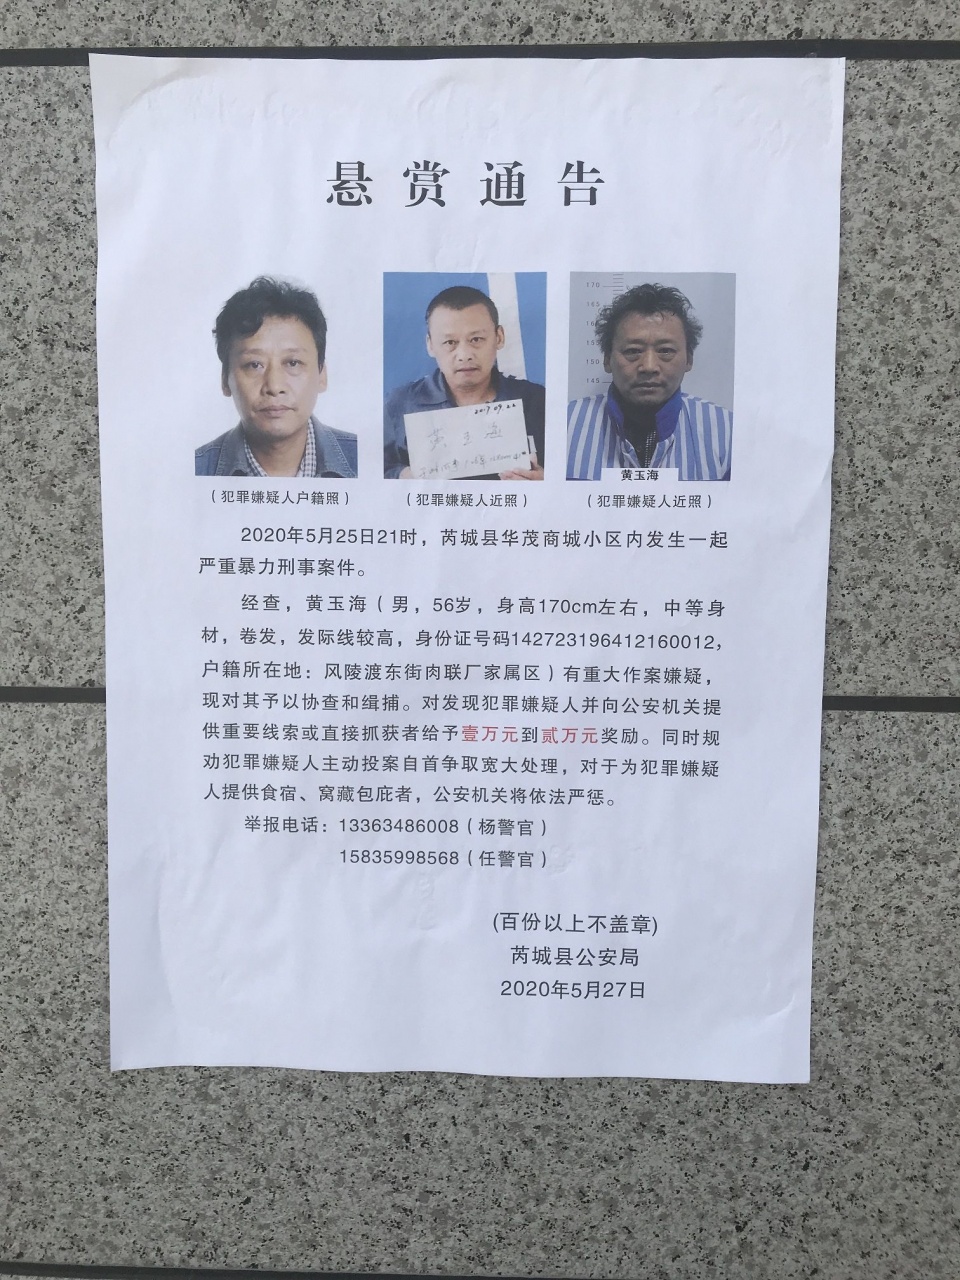 悬赏通告
170
165
150
145
2017.09.22
黄玉海
黄玉海
（犯罪嫌疑人户籍照）
（犯罪嫌疑人近照）
（犯罪嫌疑人近照）
2020年5月25日21时，芮城县华茂商城小区内发生一起
严重暴力刑事案件。
经查，黄玉海（男，56岁，身高170cm左右，中等身
材，卷发，发际线较高，身份证号码142723196412160012，
户籍所在地：风陵渡东街肉联厂家属区）有重大作案嫌疑，
现对其予以协查和缉捕。对发现犯罪嫌疑人并向公安机关提
供重要线索或直接抓获者给予壹万元到贰万元奖励。同时规
劝犯罪嫌疑人主动投案自首争取宽大处理，对于为犯罪嫌疑
人提供食宿、窝藏包庇者，公安机关将依法严惩。
举报电话：13363486008（杨警官）
15835998568（任警官）
(百份以上不盖章)
芮城县公安局
2020年5月27日